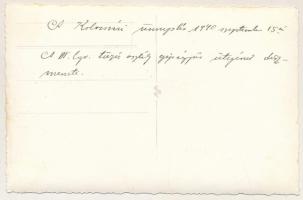 A Kolozsvári ünnepélés 1940 szeptember 15-én
A III. lgv. tüzér osztály gépágyús ütegének dísz-
menete.